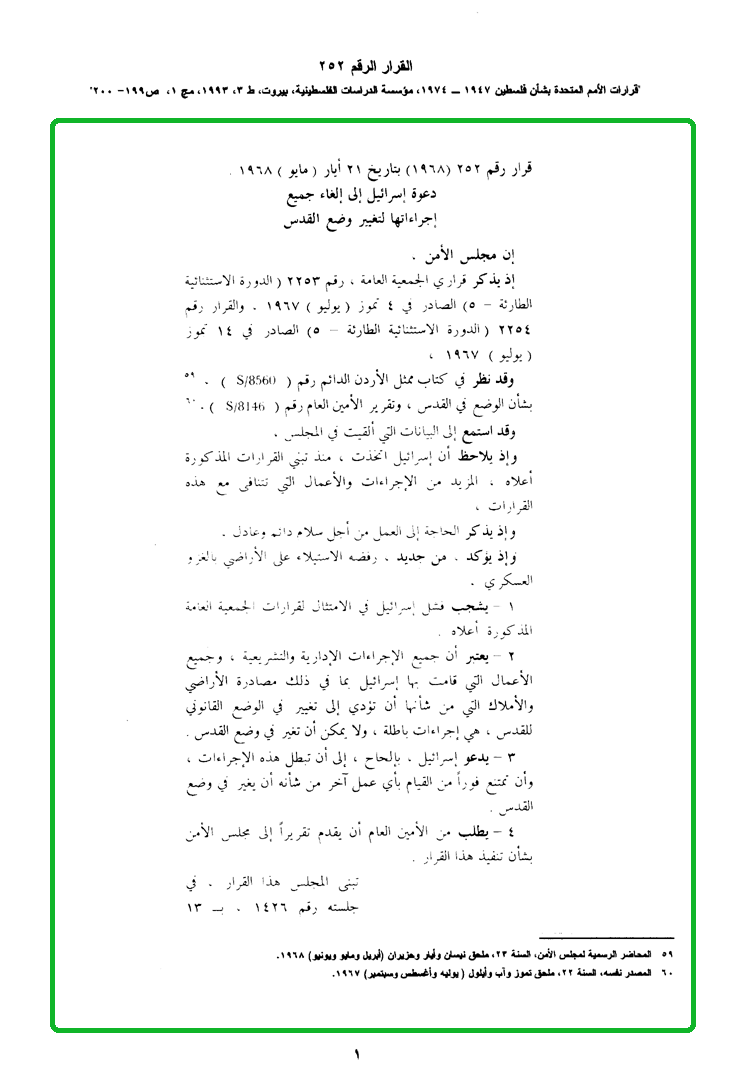 القرار الرقم ٢٥٢
"قرارات الأمم المتحدة بشأن فلسطين ١٩٤٧ ــ ١٩٧٤، مؤسسة الدراسات الفلسطينية، بيروت، ط ٣، ١٩٩٣، مج ١، ص١٩٩- ٢٠٠"
قرار رقم ٢٥٢ (١٩٦٨) بتاريخ ٢١ أيار ( مايو ) ١٩٦٨ .
دعوة إسرائيل إلى إلغاء جميع
إجراءاتها لتغيير وضع القدس
إن مجلس الأمن .
إذ يذكر قراري الجمعية العامة ، رقم ٢٢٥٣ ( الدورة الاستثنائية
الطارئة - ٥) الصادر في ٤ تموز ( يوليو ) ١٩٦٧ . والقرار رقم
٢٢٥٤ ( الدورة الاستثنائية الطارئة - ٥) الصادر في ١٤ تموز
( يوليو ) ١٩٦٧ ،
وقد نظر في كتاب ممثل الأردن الدائم رقم ( S/8560 ) . ٥٩
بشأن الوضع في القدس ، وتقرير الأمين العام رقم ( S/8146 ) . ٦٠
وقد استمع إلى البيانات التي ألقيت في المجلس ،
وإذ يلاحظ أن إسرائيل اتخذت ، منذ تبني القرارات المذكورة
أعلاه ، المزيد من الإجراءات والأعمال التي تتنافى مع هذه
القرارات ،
وإذ يذكر الحاجة إلى العمل من أجل سلام دائم وعادل .
وإذ يؤكد . من جديد . رفضه الاستيلاء على الأراضي بالغزو
العسكري .
١ - يشجب فشل إسرائيل في الامتثال لقرارات الجمعية العامة
المذكورة أعلاه .
٢ - يعتبر أن جميع الإجراءات الإدارية والتشريعية ، وجميع
الأعمال التي قامت بها إسرائيل بما في ذلك مصادرة الأراضي
والأملاك التي من شأنها أن تؤدي إلى تغيير في الوضع القانوني
للقدس ، هي إجراءات باطلة ، ولا يمكن أن تغير في وضع القدس .
٣ - يدعو إسرائيل ، بإلحاح ، إلى أن تبطل هذه الإجراءات ،
وأن تمتنع فوراً من القيام بأي عمل آخر من شأنه أن يغير في وضع
القدس .
٤ - يطلب من الأمين العام أن يقدم تقريراً إلى مجلس الأمن
بشأن تنفيذ هذا القرار .
تبنى المجلس هذا القرار . في
جلسته رقم ١٤٢٦ . بـ ١٣
٥٩ المحاضر الرسمية لمجلس الأمن، السنة ٢٣، ملحق نيسان وأيار وحزيران (أبريل ومايو ويونيو) ١٩٦٨.
٦٠ المصدر نفسه، السنة ٢٢، ملحق تموز وآب وأيلول ( يوليه وأغسطس وسبتمبر) ١٩٦٧.
١